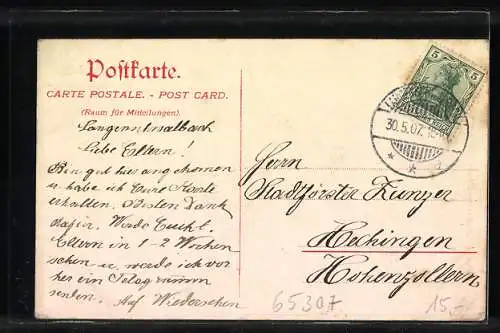 Postkarte.
CARTE POSTALE. - POST CARD.
(Raum für Mitteilungen).
Langenschwalbach
Liebe Eltern!
Bin gut hier angekommen
u habe ich Eure Karte
erhalten. Besten Dank
dafür. Werde Euch l.
Eltern in 1-2 Wochen
sehen u. werde ich vor
her ein Telegramm
senden. Auf Wiedersehen
5 5
30.5.07.
* *
Herrn
Stadtförster Zunzer
Hechingen
Hohenzollern
65307
15,-